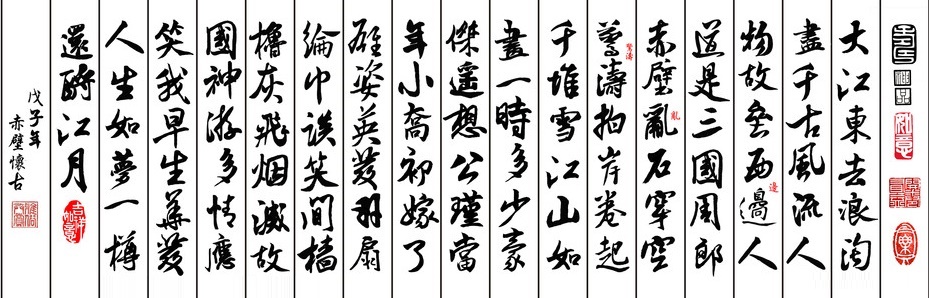 如意
大江東去浪淘
盡千古風流人
物故壘西邊人
邊
道是三國周郎
赤壁亂石穿空
亂
驚濤拍岸卷起
驚濤
千堆雪江山如
畫一時多少豪
傑遥想公瑾當
年小喬初嫁了
雄姿英發羽扇
綸巾談笑間檣
櫓灰飛烟滅故
國神游多情應
笑我早生華發
人生如夢一樽
還酹江月
吉祥如意
戊子年
赤壁懷古